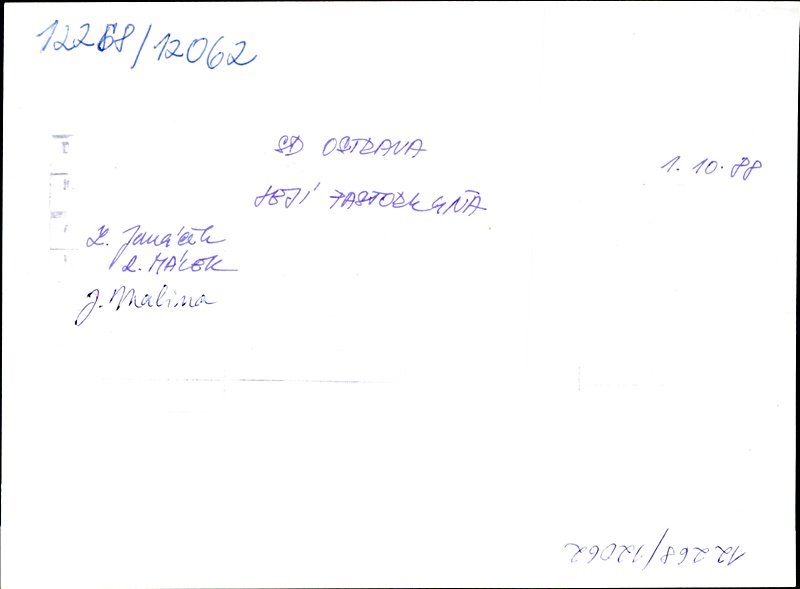 12268/12062
SD OSTRAVA
1.10.88
JEJÍ PASTORKYŇA
L. Janáček
R. MÁLEK
J. Malina
12268/12062